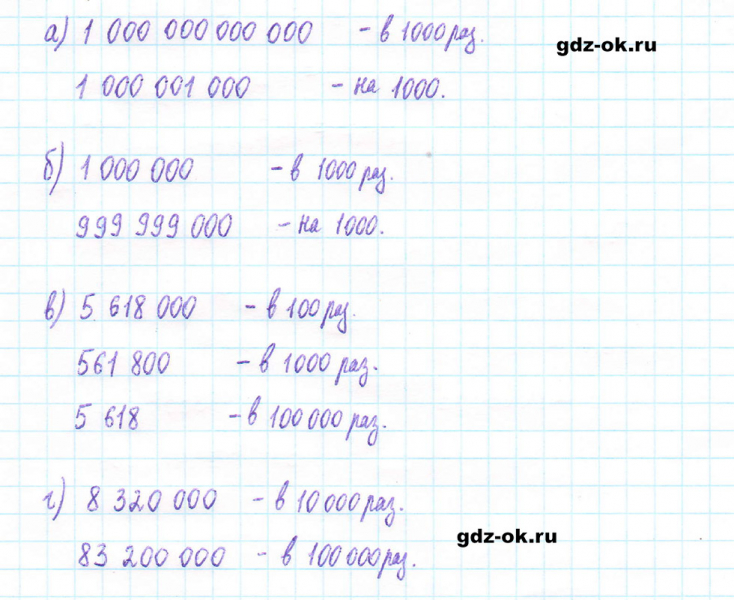 а) 1 000 000 000 000 - в 1000 раз.
gdz-ok.ru
1 000 001 000 - на 1000.
б) 1 000 000 - в 1000 раз.
999 999 000 - на 1000.
в) 5 618 000 - в 100 раз.
561 800 - в 1000 раз.
5 618 - в 100 000 раз.
г) 8 320 000 - в 10 000 раз.
gdz-ok.ru
83 200 000 - в 100 000 раз.